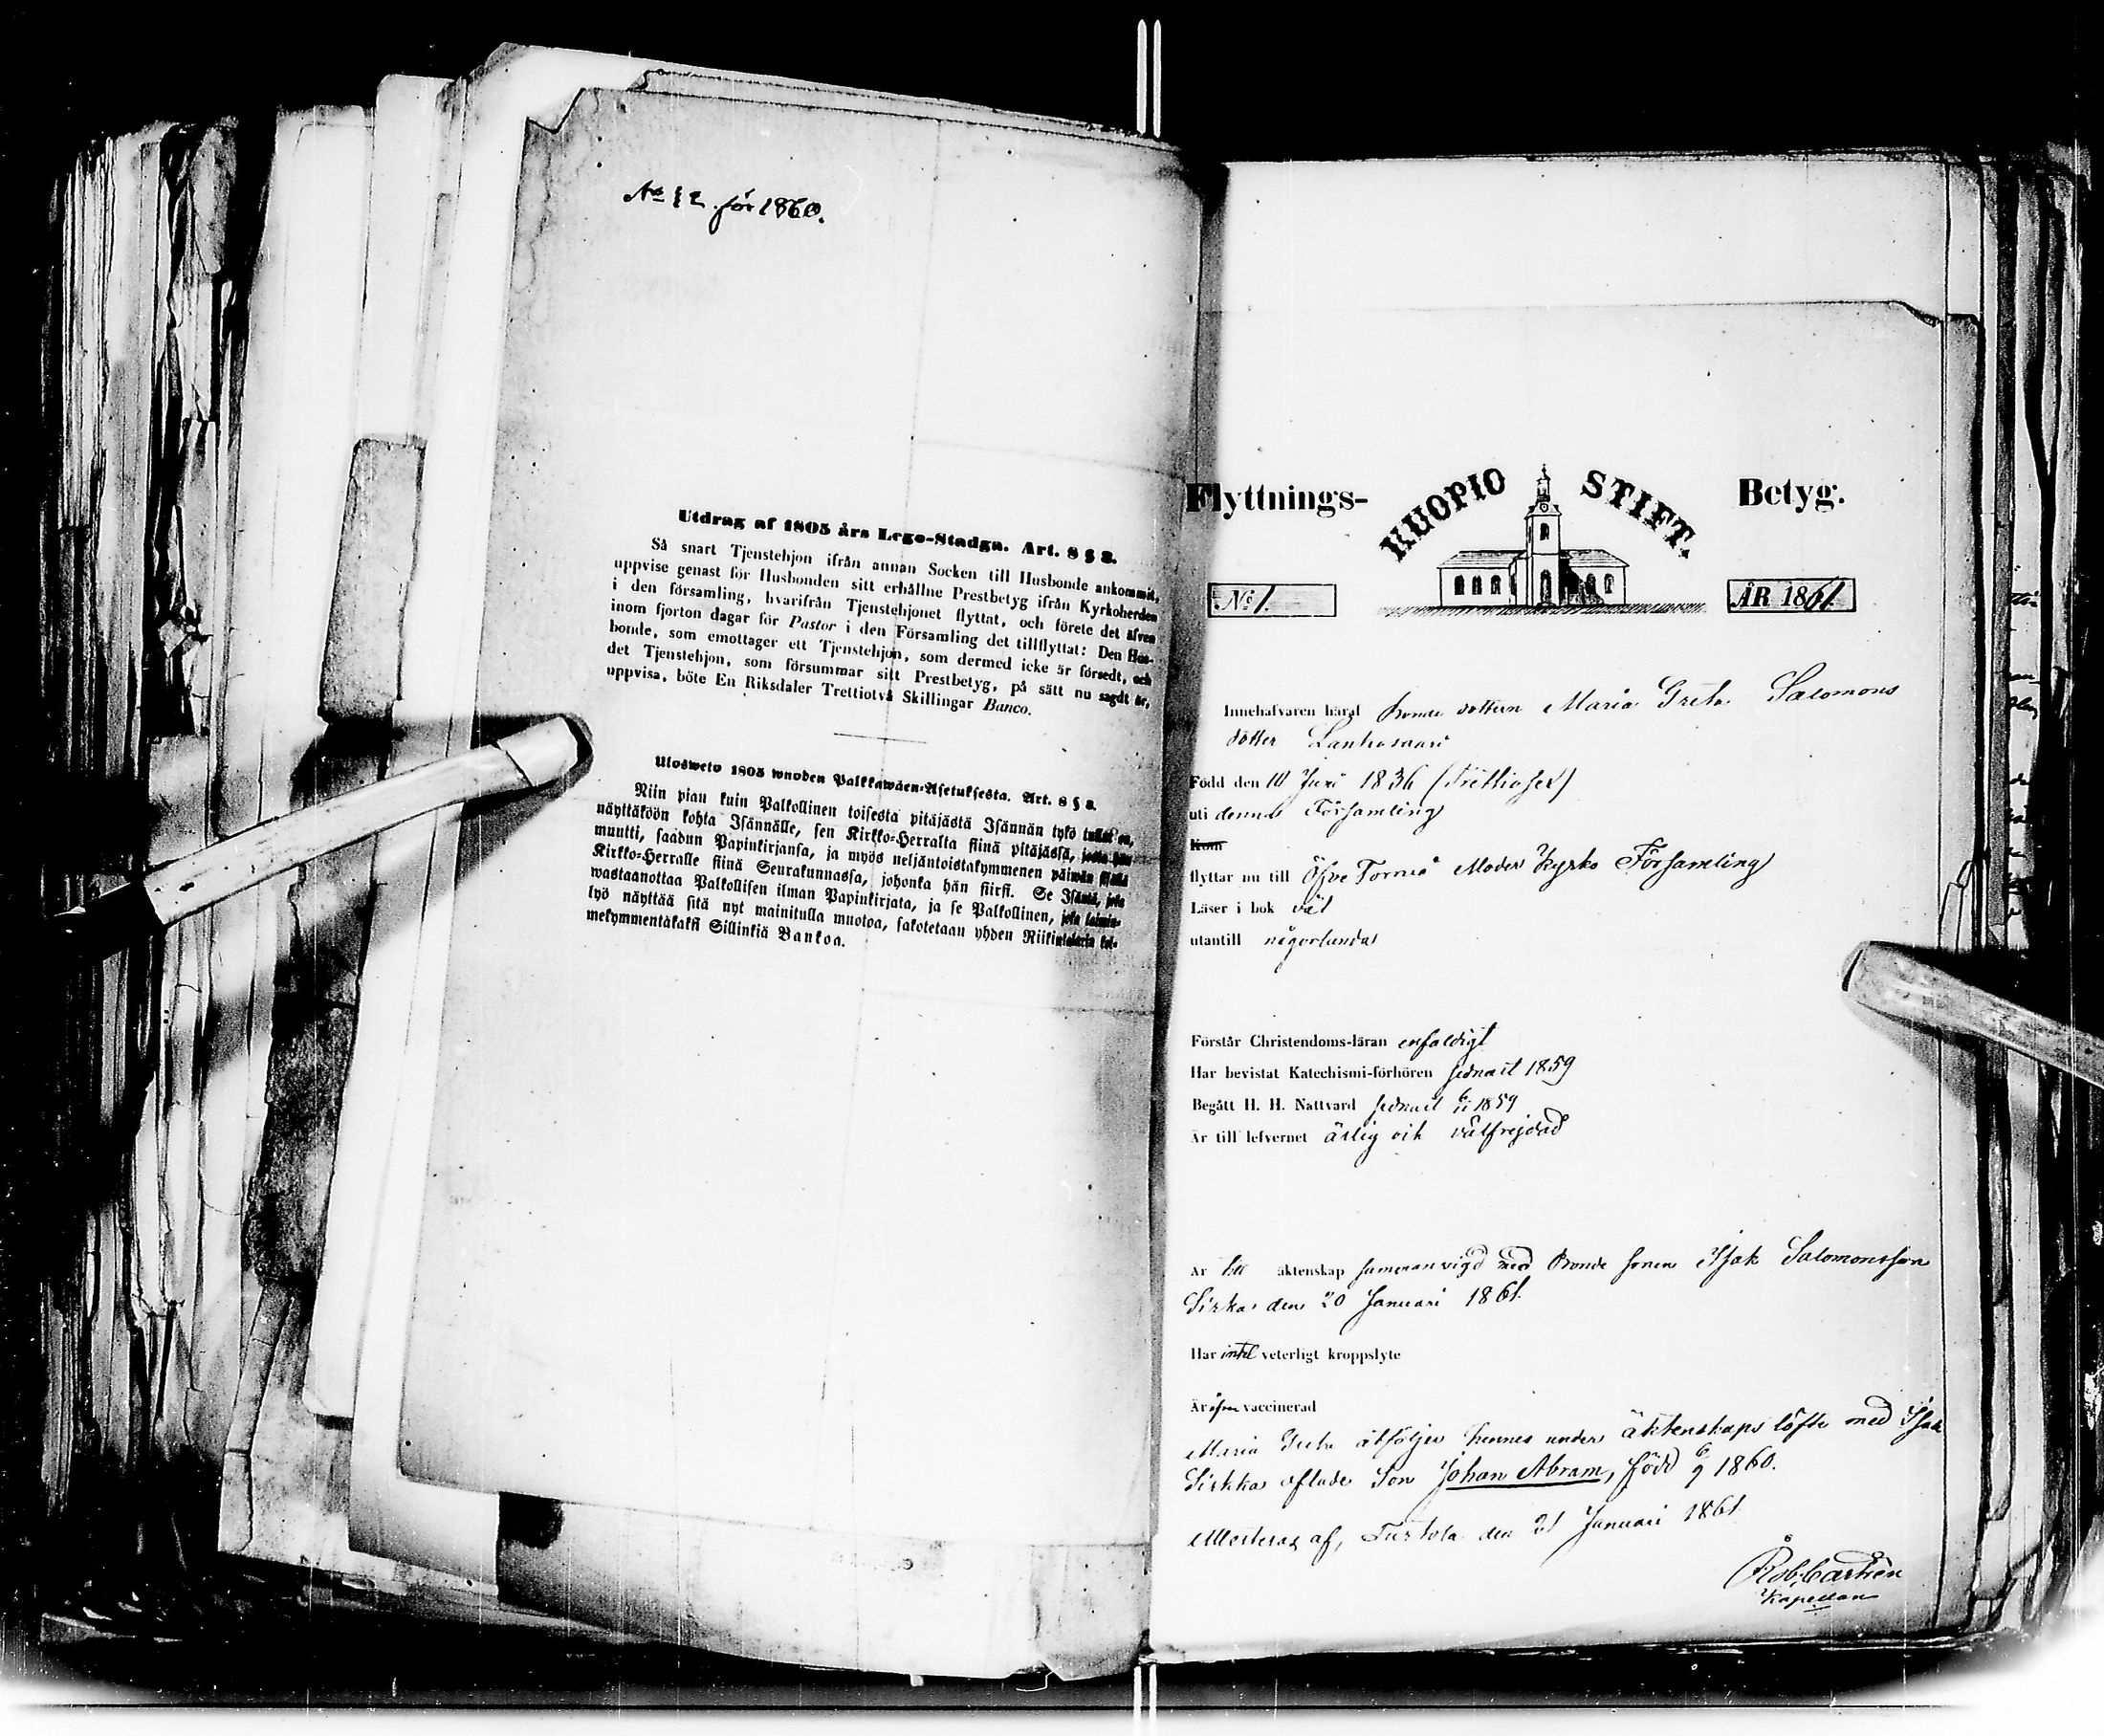 för 1860.
Utdrag af 1805 års Lego-Stadga. Art. 8 § 8.
Så snart Tjenstehjon ifrån annan Socken till Husbonde ankommit,
uppvise genast för Husbonden sitt erhållne Prestbetyg ifrån Kyrkoherden
i den församling, hvarifrån Tjenstehjonet flyttat, och förete det äfven
inom fjorton dagar för Pastor i den Församling det tillflyttat: Den Hus-
bonde, som emottager ett Tjenstehjon, som dermed icke är försedt, och
det Tjenstehjon, som försummar sitt Prestbetyg, på sätt nu sagdt är,
uppvisa, böte En Riksdaler Trettiotvå Skillingar Banco.
Ulosweto 1805 wuoden Palkkawäen-Asetuksesta. Art. 8 § 8.
Niin pian kuin Palkollinen toisesta pitäjästä Isännän tykö tullut on,
näyttäköön kohta Isännälle, sen Kirkko-Herralta siinä pitäjässä, josta hän
muutti, saadun Papinkirjansa, ja myös neljäntoistakymmenen päiwän sisällä
Kirkko-Herralle siinä Seurakunnassa, johonka hän siirsi. Se Isäntä, joka
wastaanottaa Palkollisen ilman Papinkirjata, ja se Palkollinen, joka laimin-
lyö näyttää sitä nyt mainitulla muotoa, sakotetaan yhden Riikintalarin kol-
mekymmentäkaksi Sillinkiä Bankoa.
Flyttnings- KUOPIO STIFT. Betyg.
No 1. ÅR 1861.
Innehafvaren häraf Bonde dottren Maria Greta Salomons
dotter Lankosaari
Född den 10 Juni 1836 (Trettiosex)
uti denna Församling
Kom
flyttar nu till Öfve Torneå Moder Kyrko Församling
Läser i bok väl
utantill någorlunda
Förstår Christendoms-läran enfaldigt
Har bevistat Katechismi-förhören sednast 1859
Begått H. H. Nattvard sednast 6/11 1859
Är till lefvernet ärlig och välfrejdad
Är till äktenskap sammanvigd med Bonde sonen Isak Salomonsson
Sirka den 20 Januari 1861.
Har intet veterligt kroppslyte
Är äfven vaccinerad
Maria Greta åtföljer hennes under äktenskaps löfte med Isak
Sirkka aflade Son Johan Abram, född 6/9 1860.
Attesteras af, Turtola den 21 Januari 1861
Rob. Castrén
Kapellan